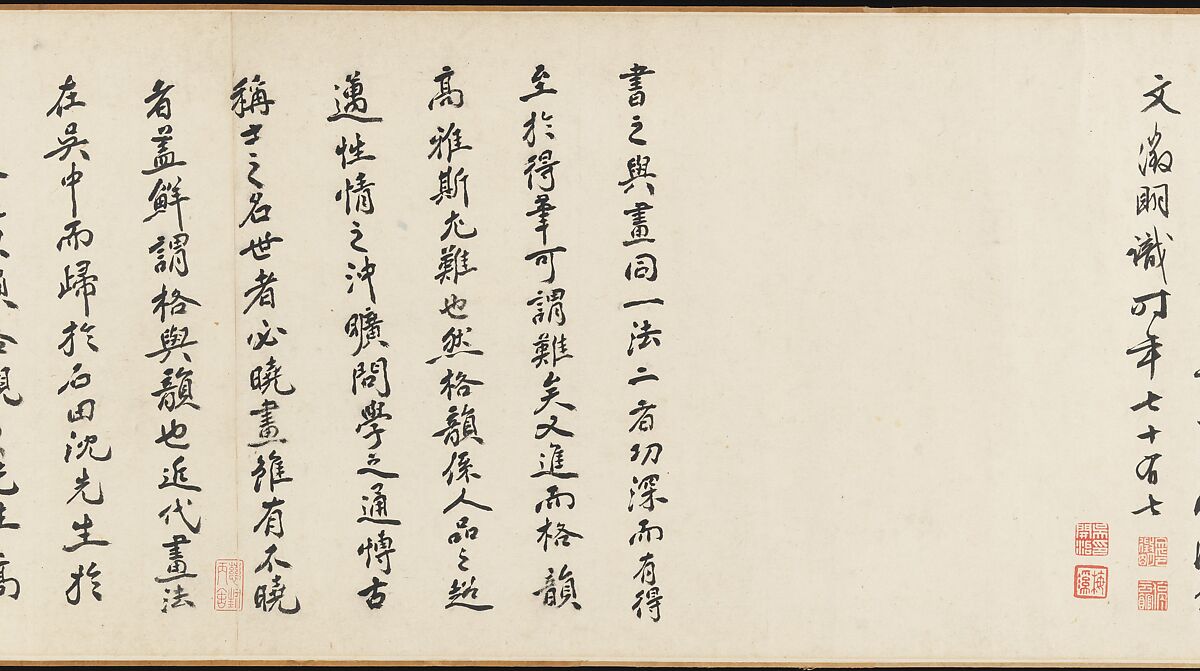 文徵明識時年七十有七
書之與畫同一法二者功深而有得
至於得筆可謂難矣又進而格韻
高雅斯尤難也然格韻係人品〻超
邁性情之沖曠問學之通愽古
稱士之名世者必曉畫雖有不曉
者蓋鮮謂格與韻也近代畫法
在吳中而歸於石田沈先生於
先生高